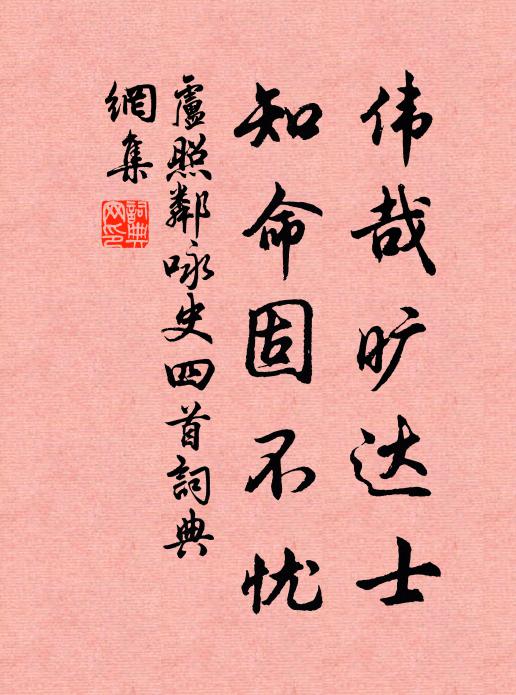 伟哉旷达士
知命固不忧
盧照鄰咏史四首詞典
網集
詞典
网印